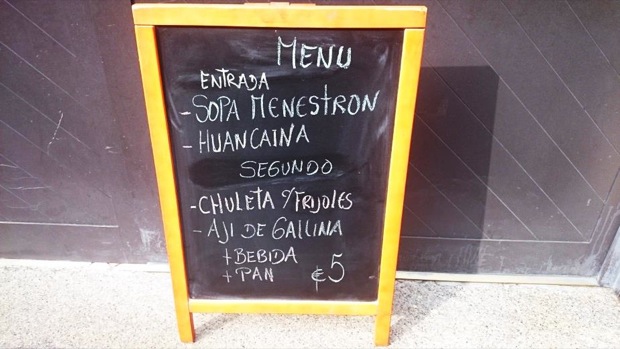 MENU
ENTRADA
- SOPA MENESTRON
- HUANCAINA
SEGUNDO
- CHULETA C/FRIJOLES
- AJI DE GALLINA
+ BEBIDA
+ PAN ¢5